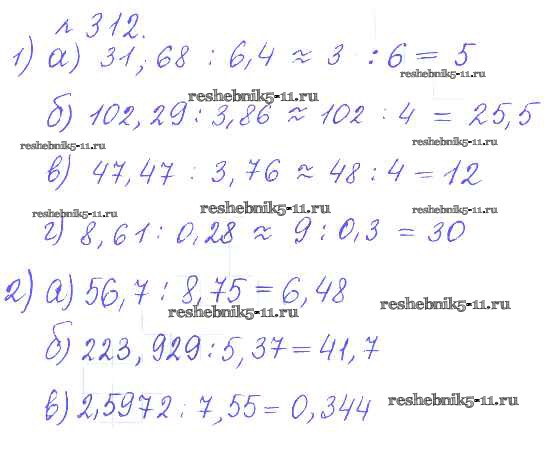 № 312.
1) а) 31,68 : 6,4 ≈ 3 : 6 = 5
reshebnik5-11.ru
reshebnik5-11.ru
б) 102,29 : 3,86 ≈ 102 : 4 = 25,5
reshebnik5-11.ru
reshebnik5-11.ru
в) 47,47 : 3,76 ≈ 48 : 4 = 12
reshebnik5-11.ru
reshebnik5-11.ru
reshebnik5-11.ru
г) 8,61 : 0,28 ≈ 9 : 0,3 = 30
2) а) 56,7 : 8,75 = 6,48
reshebnik5-11.ru
reshebnik5-11.ru
б) 223,929 : 5,37 = 41,7
в) 2,5972 : 7,55 = 0,344
reshebnik5-11.ru